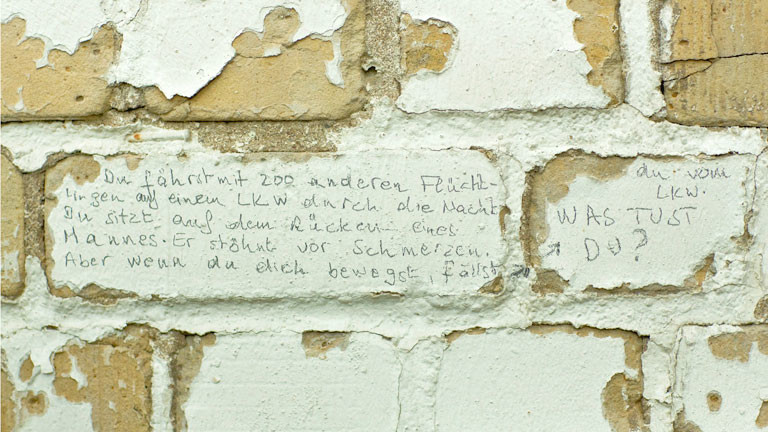 Du fährst mit 200 anderen Flücht-
lingen auf einem LKW durch die Nacht
Du sitzt auf dem Rücken eines
Mannes. Er stöhnt vor Schmerzen.
Aber wenn du dich bewegst, fällst →
→ du vom
LKW.
WAS TUST
DU?